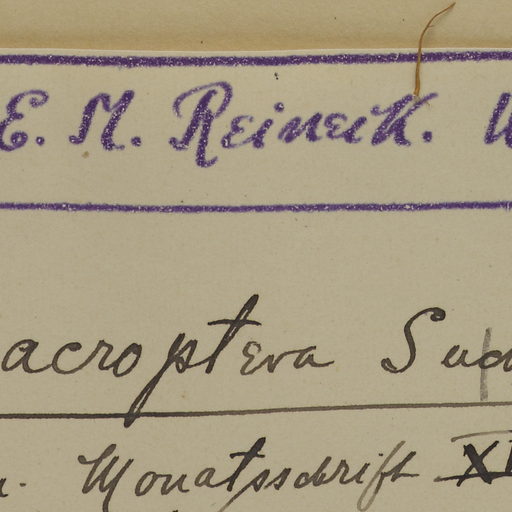 E. M. Reineck.
acroptera Suc
Monatsschrift XI